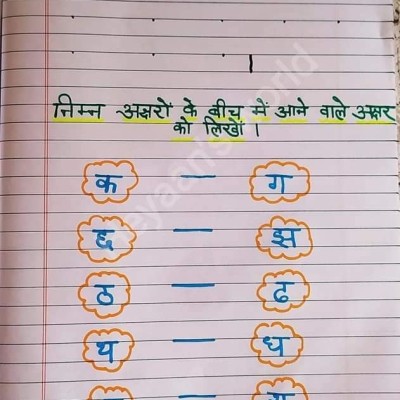 निम्न अक्षरों के बीच में आने वाले अक्षर
को लिखों ।
क — ग
छ — झ
ठ — ढ
थ — ध